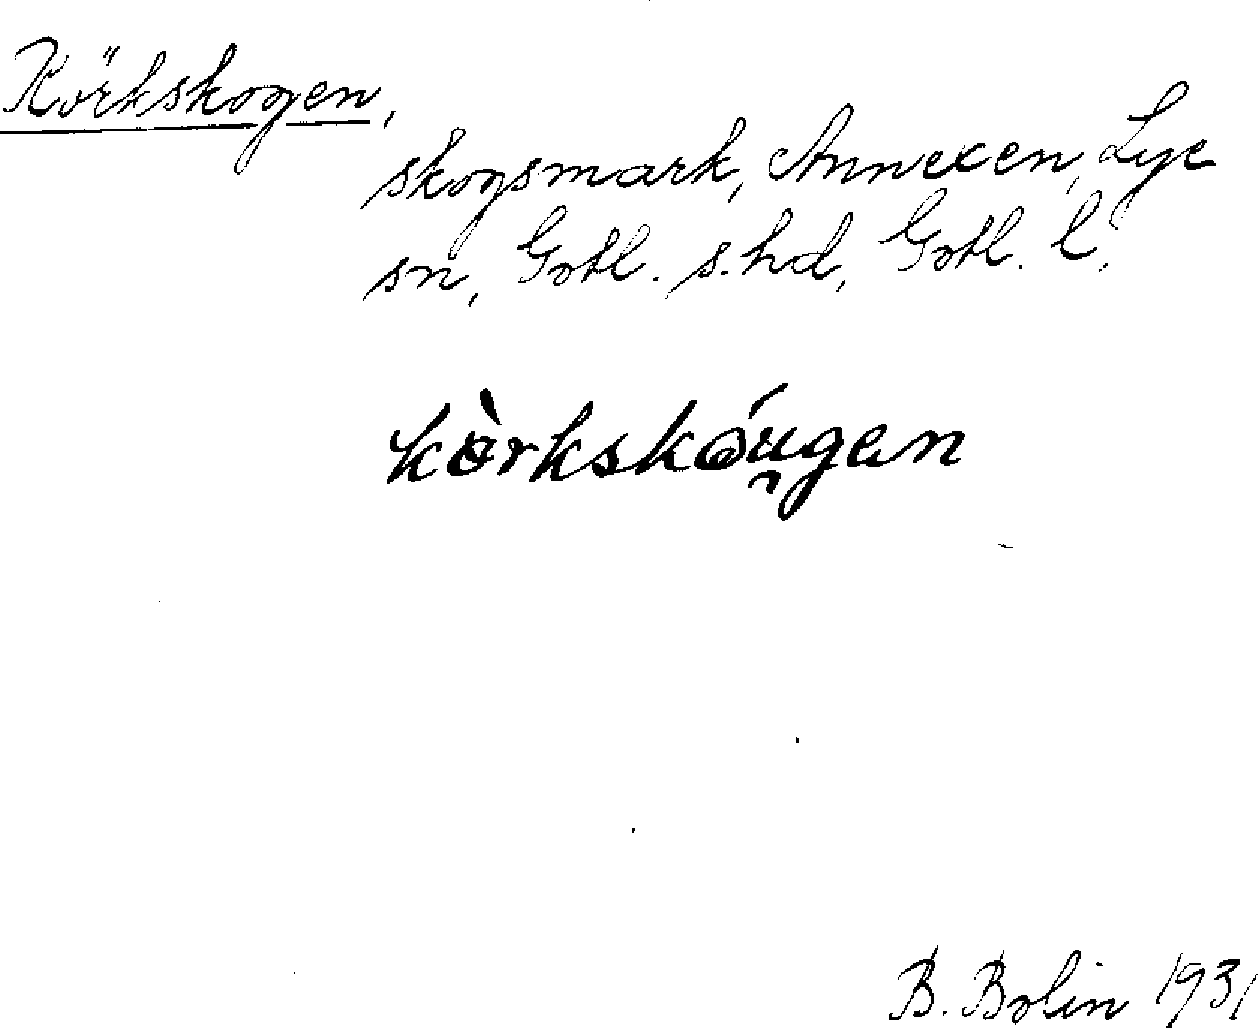 Körkskogen,
skogsmark, Annexen, Lye
sn, Gotl. s. hd, Gotl. l.
B. Bolin 1931